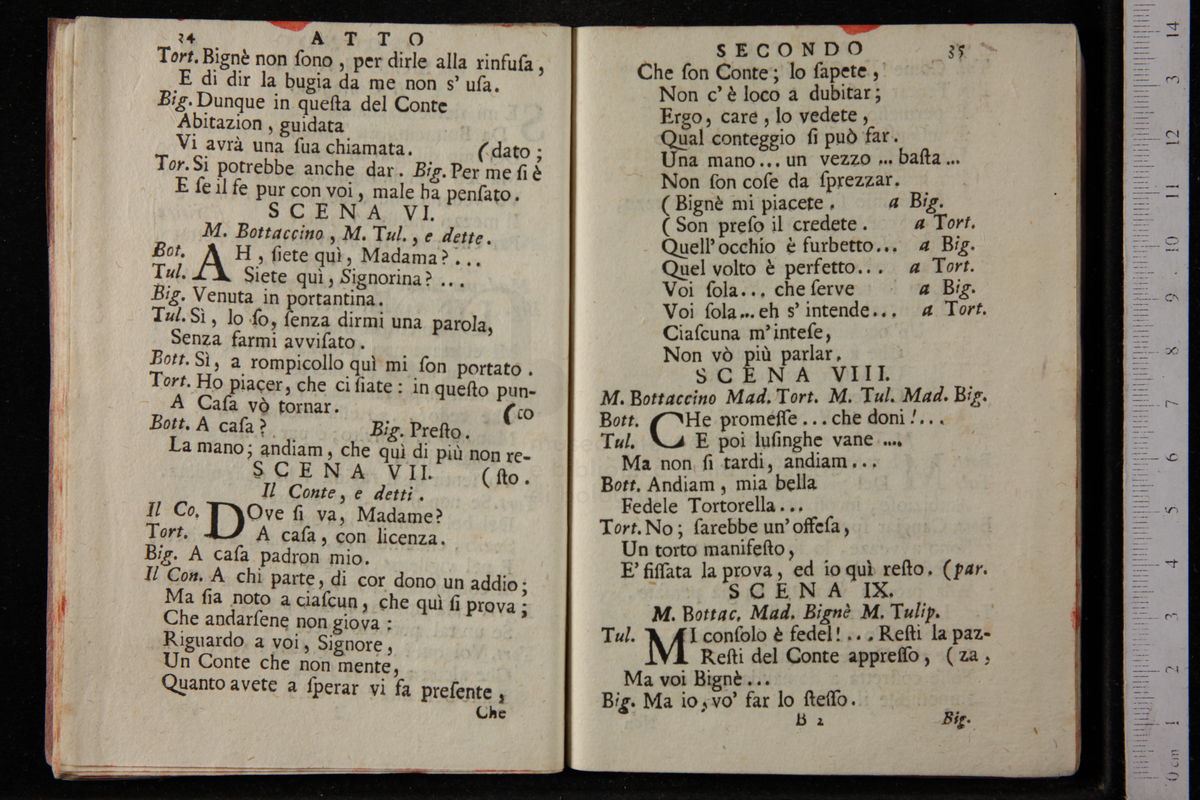 34 ATTO
Tort. Bignè non ſono , per dirle alla rinfuſa ,
E di dir la bugia da me non s' uſa.
Big. Dunque in queſta del Conte
Abitazion , guidata
Vi avrà una ſua chiamata. (dato ;
Tor. Si potrebbe anche dar . Big. Per me ſi è
E ſe il fe pur con voi , male ha penſato .
SCENA VI.
M. Bottaccino , M. Tul. , e dette .
Bot. AH , ſiete quì , Madama ? . . .
Tul. Siete quì , Signorina ? . . .
Big. Venuta in portantina .
Tul. Sì , lo ſo , ſenza dirmi una parola,
Senza farmi avviſato .
Bott. Sì , a rompicollo quì mi ſon portato .
Tort. Ho piacer, che ci ſiate : in queſto pun-
A Caſa vò tornar . (co
Bott. A caſa ? Big. Preſto .
La mano ; andiam , che quì di più non re-
SCENA VII. (ſto .
Il Conte , e detti .
Il Co. DOve ſi va, Madame?
Tort. A caſa , con licenza .
Big. A caſa padron mio .
Il Con. A chi parte, di cor dono un addio ;
Ma ſia noto a ciaſcun , che quì ſi prova ;
Che andarſene non giova :
Riguardo a voi , Signore ,
Un Conte che non mente,
Quanto avete a ſperar vi fa preſente ,
Che
SECONDO 35
Che ſon Conte ; lo ſapete ,
Non c' è loco a dubitar ;
Ergo , care , lo vedete ,
Qual conteggio ſi può far .
Una mano . . . un vezzo ... baſta ...
Non ſon coſe da ſprezzar .
( Bignè mi piacete . a Big.
( Son preſo il credete . a Tort.
Quell' occhio è furbetto . . . a Big.
Quel volto è perfetto . . . a Tort.
Voi ſola . . . che ſerve a Big.
Voi ſola ... eh s' intende . . . a Tort.
Ciaſcuna m' inteſe ,
Non vò più parlar .
SCENA VIII.
M. Bottaccino Mad. Tort. M. Tul. Mad. Big.
Bott. CHe promeſſe . . . che doni ! . . .
Tul. E poi luſinghe vane ....
Ma non ſi tardi , andiam . . .
Bott. Andiam , mia bella
Fedele Tortorella . . .
Tort. No ; ſarebbe un' offeſa ,
Un torto manifeſto ,
E' fiſſata la prova , ed io quì reſto . (par.
SCENA IX.
M. Bottac. Mad. Bignè M. Tulip.
Tul. MI conſolo è fedel ! . . . Reſti la paz-
Reſti del Conte appreſſo , (za ,
Ma voi Bignè . . .
Big. Ma io , vo' far lo ſteſſo .
B 2 Big.
0 cm 1 2 3 4 5 6 7 8 9 10 11 12 13 14